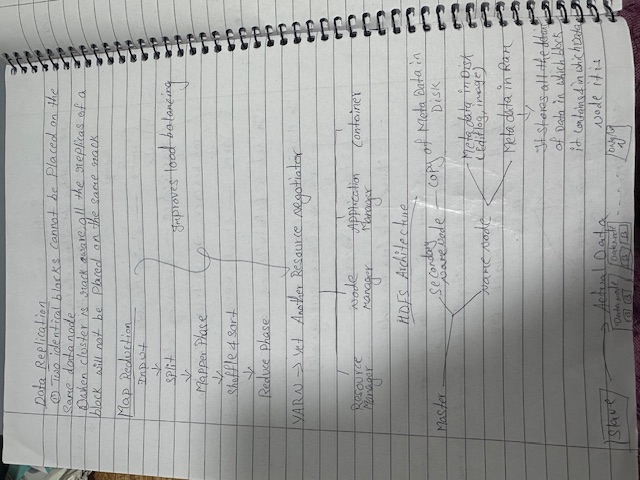 Data Replication
① Two identical blocks cannot be Placed on the
Same datanode
② when cluster is rack aware, all the replicas of a
block will not be Placed on the same rack
Map Reduction
Input
↓
split
↓
Mapper Phase
↓
Shuffle & Sort
↓
Reduce Phase
Improves load balancing
YARN → Yet Another Resource negotiator
Resource
Manager
Node
Manager
Application
Manager
Container
HDFS Architecture
Master
Secondary
NameNode
copy of Meta Data in
Disk
Name Node
Meta data in Disk
(editlog, image)
Meta data in Ram
↓
It stores all the
of Data in which block
it contains & in which Data
Node it is
Slave
Actual Data
Data node